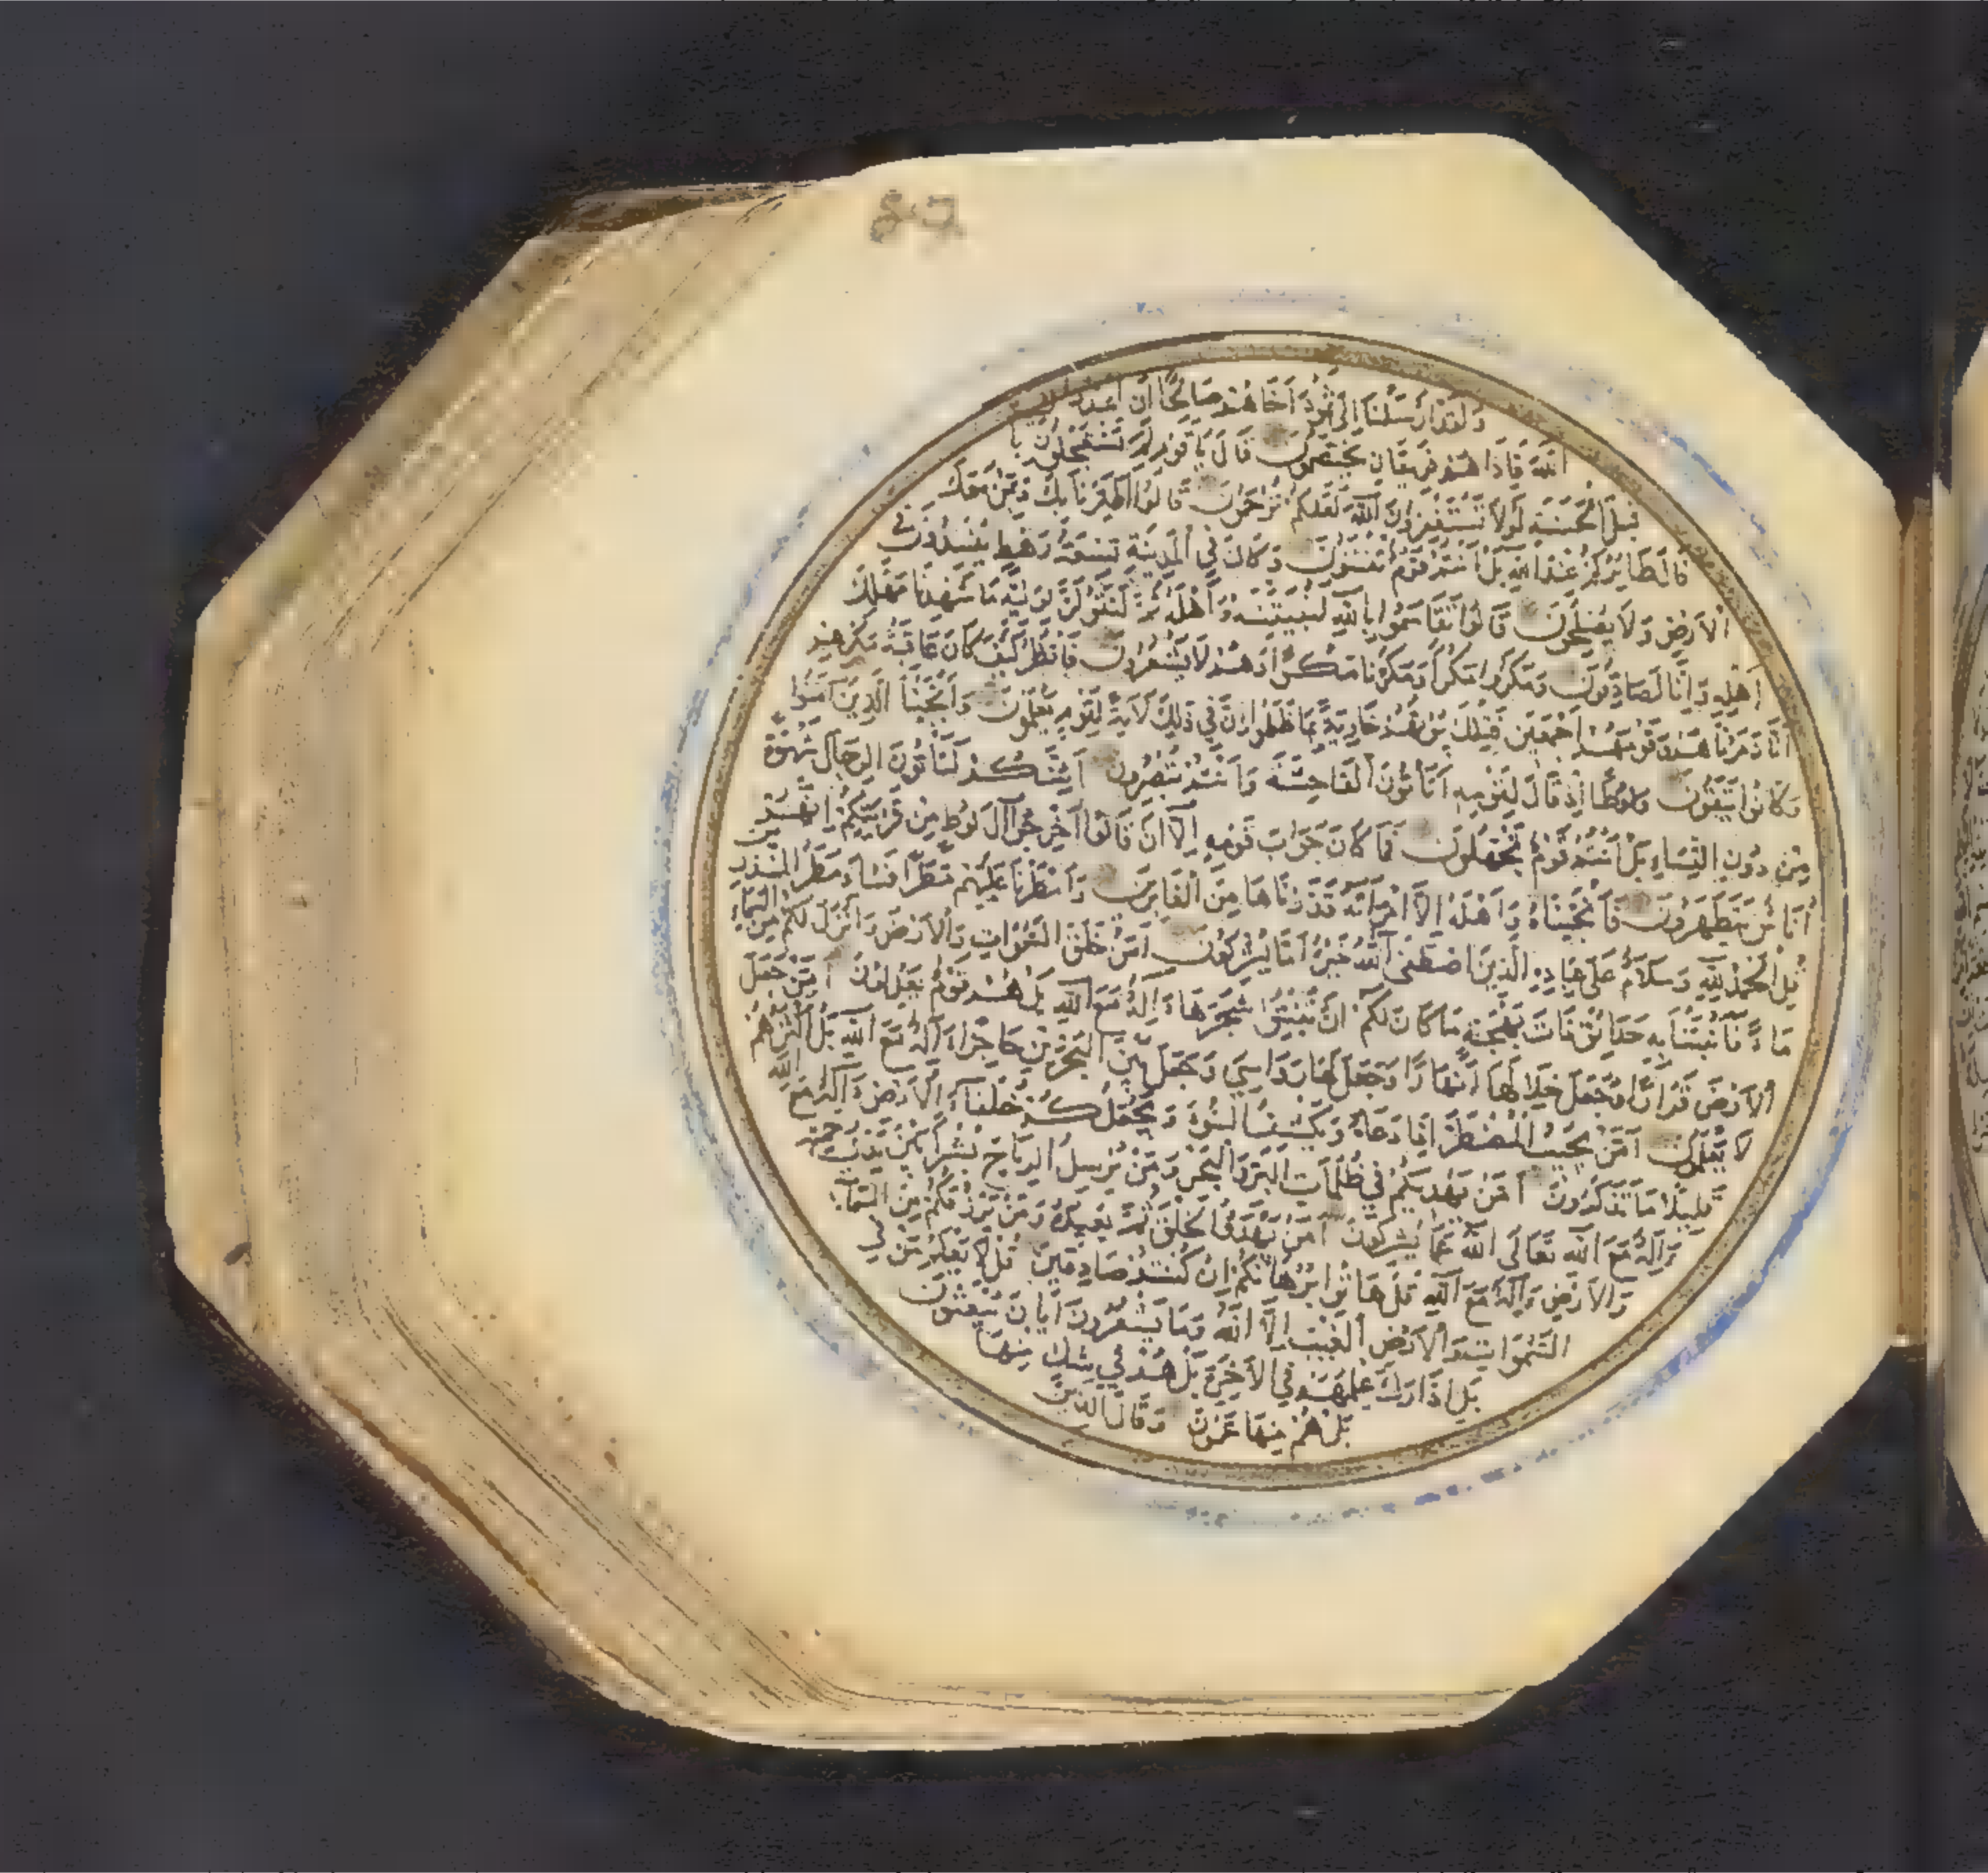 وَلَقَدْ اَرْسَلْنَا اِلٰى ثَمُودَ اَخَاهُمْ صَالِحًا اَنِ اعْبُدُوا
اللّٰهَ فَاِذَا هُمْ فَرِيقَانِ يَخْتَصِمُونَ قَالَ يَا قَوْمِ لِمَ تَسْتَعْجِلُونَ بِا
قَبْلَ الْحَسَنَةِ لَوْلَا تَسْتَغْفِرُونَ اللّٰهَ لَعَلَّكُمْ تُرْحَمُونَ قَالُوا اطَّيَّرْنَا بِكَ وَبِمَنْ مَعَكَ
قَالَ طَائِرُكُمْ عِنْدَ اللّٰهِ بَلْ اَنْتُمْ قَوْمٌ تُفْتَنُونَ وَكَانَ فِي الْمَدِينَةِ تِسْعَةُ رَهْطٍ يُفْسِدُونَ فِي
الْاَرْضِ وَلَا يُصْلِحُونَ قَالُوا تَقَاسَمُوا بِاللّٰهِ لَنُبَيِّتَنَّهُ وَاَهْلَهُ ثُمَّ لَنَقُولَنَّ لِوَلِيِّهِ مَا شَهِدْنَا مَهْلِكَ
اَهْلِهِ وَاِنَّا لَصَادِقُونَ وَمَكَرُوا مَكْرًا وَمَكَرْنَا مَكْرًا وَهُمْ لَا يَشْعُرُونَ فَانْظُرْ كَيْفَ كَانَ عَاقِبَةُ مَكْرِهِمْ
اَنَّا دَمَّرْنَاهُمْ وَقَوْمَهُمْ اَجْمَعِينَ فَتِلْكَ بُيُوتُهُمْ خَاوِيَةً بِمَا ظَلَمُوا اِنَّ فِي ذٰلِكَ لَاٰيَةً لِقَوْمٍ يَعْلَمُونَ وَاَنْجَيْنَا الَّذِينَ اٰمَنُوا
وَكَانُوا يَتَّقُونَ وَلُوطًا اِذْ قَالَ لِقَوْمِهِ اَتَأْتُونَ الْفَاحِشَةَ وَاَنْتُمْ تُبْصِرُونَ اَئِنَّكُمْ لَتَأْتُونَ الرِّجَالَ شَهْوَةً
مِنْ دُونِ النِّسَاءِ بَلْ اَنْتُمْ قَوْمٌ تَجْهَلُونَ فَمَا كَانَ جَوَابَ قَوْمِهِ اِلَّا اَنْ قَالُوا اَخْرِجُوا اٰلَ لُوطٍ مِنْ قَرْيَتِكُمْ اِنَّهُمْ
اُنَاسٌ يَتَطَهَّرُونَ فَاَنْجَيْنَاهُ وَاَهْلَهُ اِلَّا امْرَاَتَهُ قَدَّرْنَاهَا مِنَ الْغَابِرِينَ وَاَمْطَرْنَا عَلَيْهِمْ مَطَرًا فَسَاءَ مَطَرُ الْمُنْذَرِينَ
قُلِ الْحَمْدُ لِلّٰهِ وَسَلَامٌ عَلٰى عِبَادِهِ الَّذِينَ اصْطَفٰى اٰللّٰهُ خَيْرٌ اَمَّا يُشْرِكُونَ اَمَّنْ خَلَقَ السَّمٰوَاتِ وَالْاَرْضَ وَاَنْزَلَ لَكُمْ مِنَ السَّمَاءِ
مَاءً فَاَنْبَتْنَا بِهِ حَدَائِقَ ذَاتَ بَهْجَةٍ مَا كَانَ لَكُمْ اَنْ تُنْبِتُوا شَجَرَهَا ءَاِلٰهٌ مَعَ اللّٰهِ بَلْ هُمْ قَوْمٌ يَعْدِلُونَ اَمَّنْ جَعَلَ
الْاَرْضَ قَرَارًا وَجَعَلَ خِلَالَهَا اَنْهَارًا وَجَعَلَ لَهَا رَوَاسِيَ وَجَعَلَ بَيْنَ الْبَحْرَيْنِ حَاجِزًا ءَاِلٰهٌ مَعَ اللّٰهِ بَلْ اَكْثَرُهُمْ
لَا يَعْلَمُونَ اَمَّنْ يُجِيبُ الْمُضْطَرَّ اِذَا دَعَاهُ وَيَكْشِفُ السُّوءَ وَيَجْعَلُكُمْ خُلَفَاءَ الْاَرْضِ ءَاِلٰهٌ مَعَ اللّٰهِ
قَلِيلًا مَا تَذَكَّرُونَ اَمَّنْ يَهْدِيكُمْ فِي ظُلُمَاتِ الْبَرِّ وَالْبَحْرِ وَمَنْ يُرْسِلُ الرِّيَاحَ بُشْرًا بَيْنَ يَدَيْ رَحْمَتِهِ
ءَاِلٰهٌ مَعَ اللّٰهِ تَعَالَى اللّٰهُ عَمَّا يُشْرِكُونَ اَمَّنْ يَبْدَؤُا الْخَلْقَ ثُمَّ يُعِيدُهُ وَمَنْ يَرْزُقُكُمْ مِنَ السَّمَاءِ
وَالْاَرْضِ ءَاِلٰهٌ مَعَ اللّٰهِ قُلْ هَاتُوا بُرْهَانَكُمْ اِنْ كُنْتُمْ صَادِقِينَ قُلْ لَا يَعْلَمُ مَنْ فِي
السَّمٰوَاتِ وَالْاَرْضِ الْغَيْبَ اِلَّا اللّٰهُ وَمَا يَشْعُرُونَ اَيَّانَ يُبْعَثُونَ
بَلِ ادَّارَكَ عِلْمُهُمْ فِي الْاٰخِرَةِ بَلْ هُمْ فِي شَكٍّ مِنْهَا
بَلْ هُمْ مِنْهَا عَمُونَ وَقَالَ الَّذِينَ